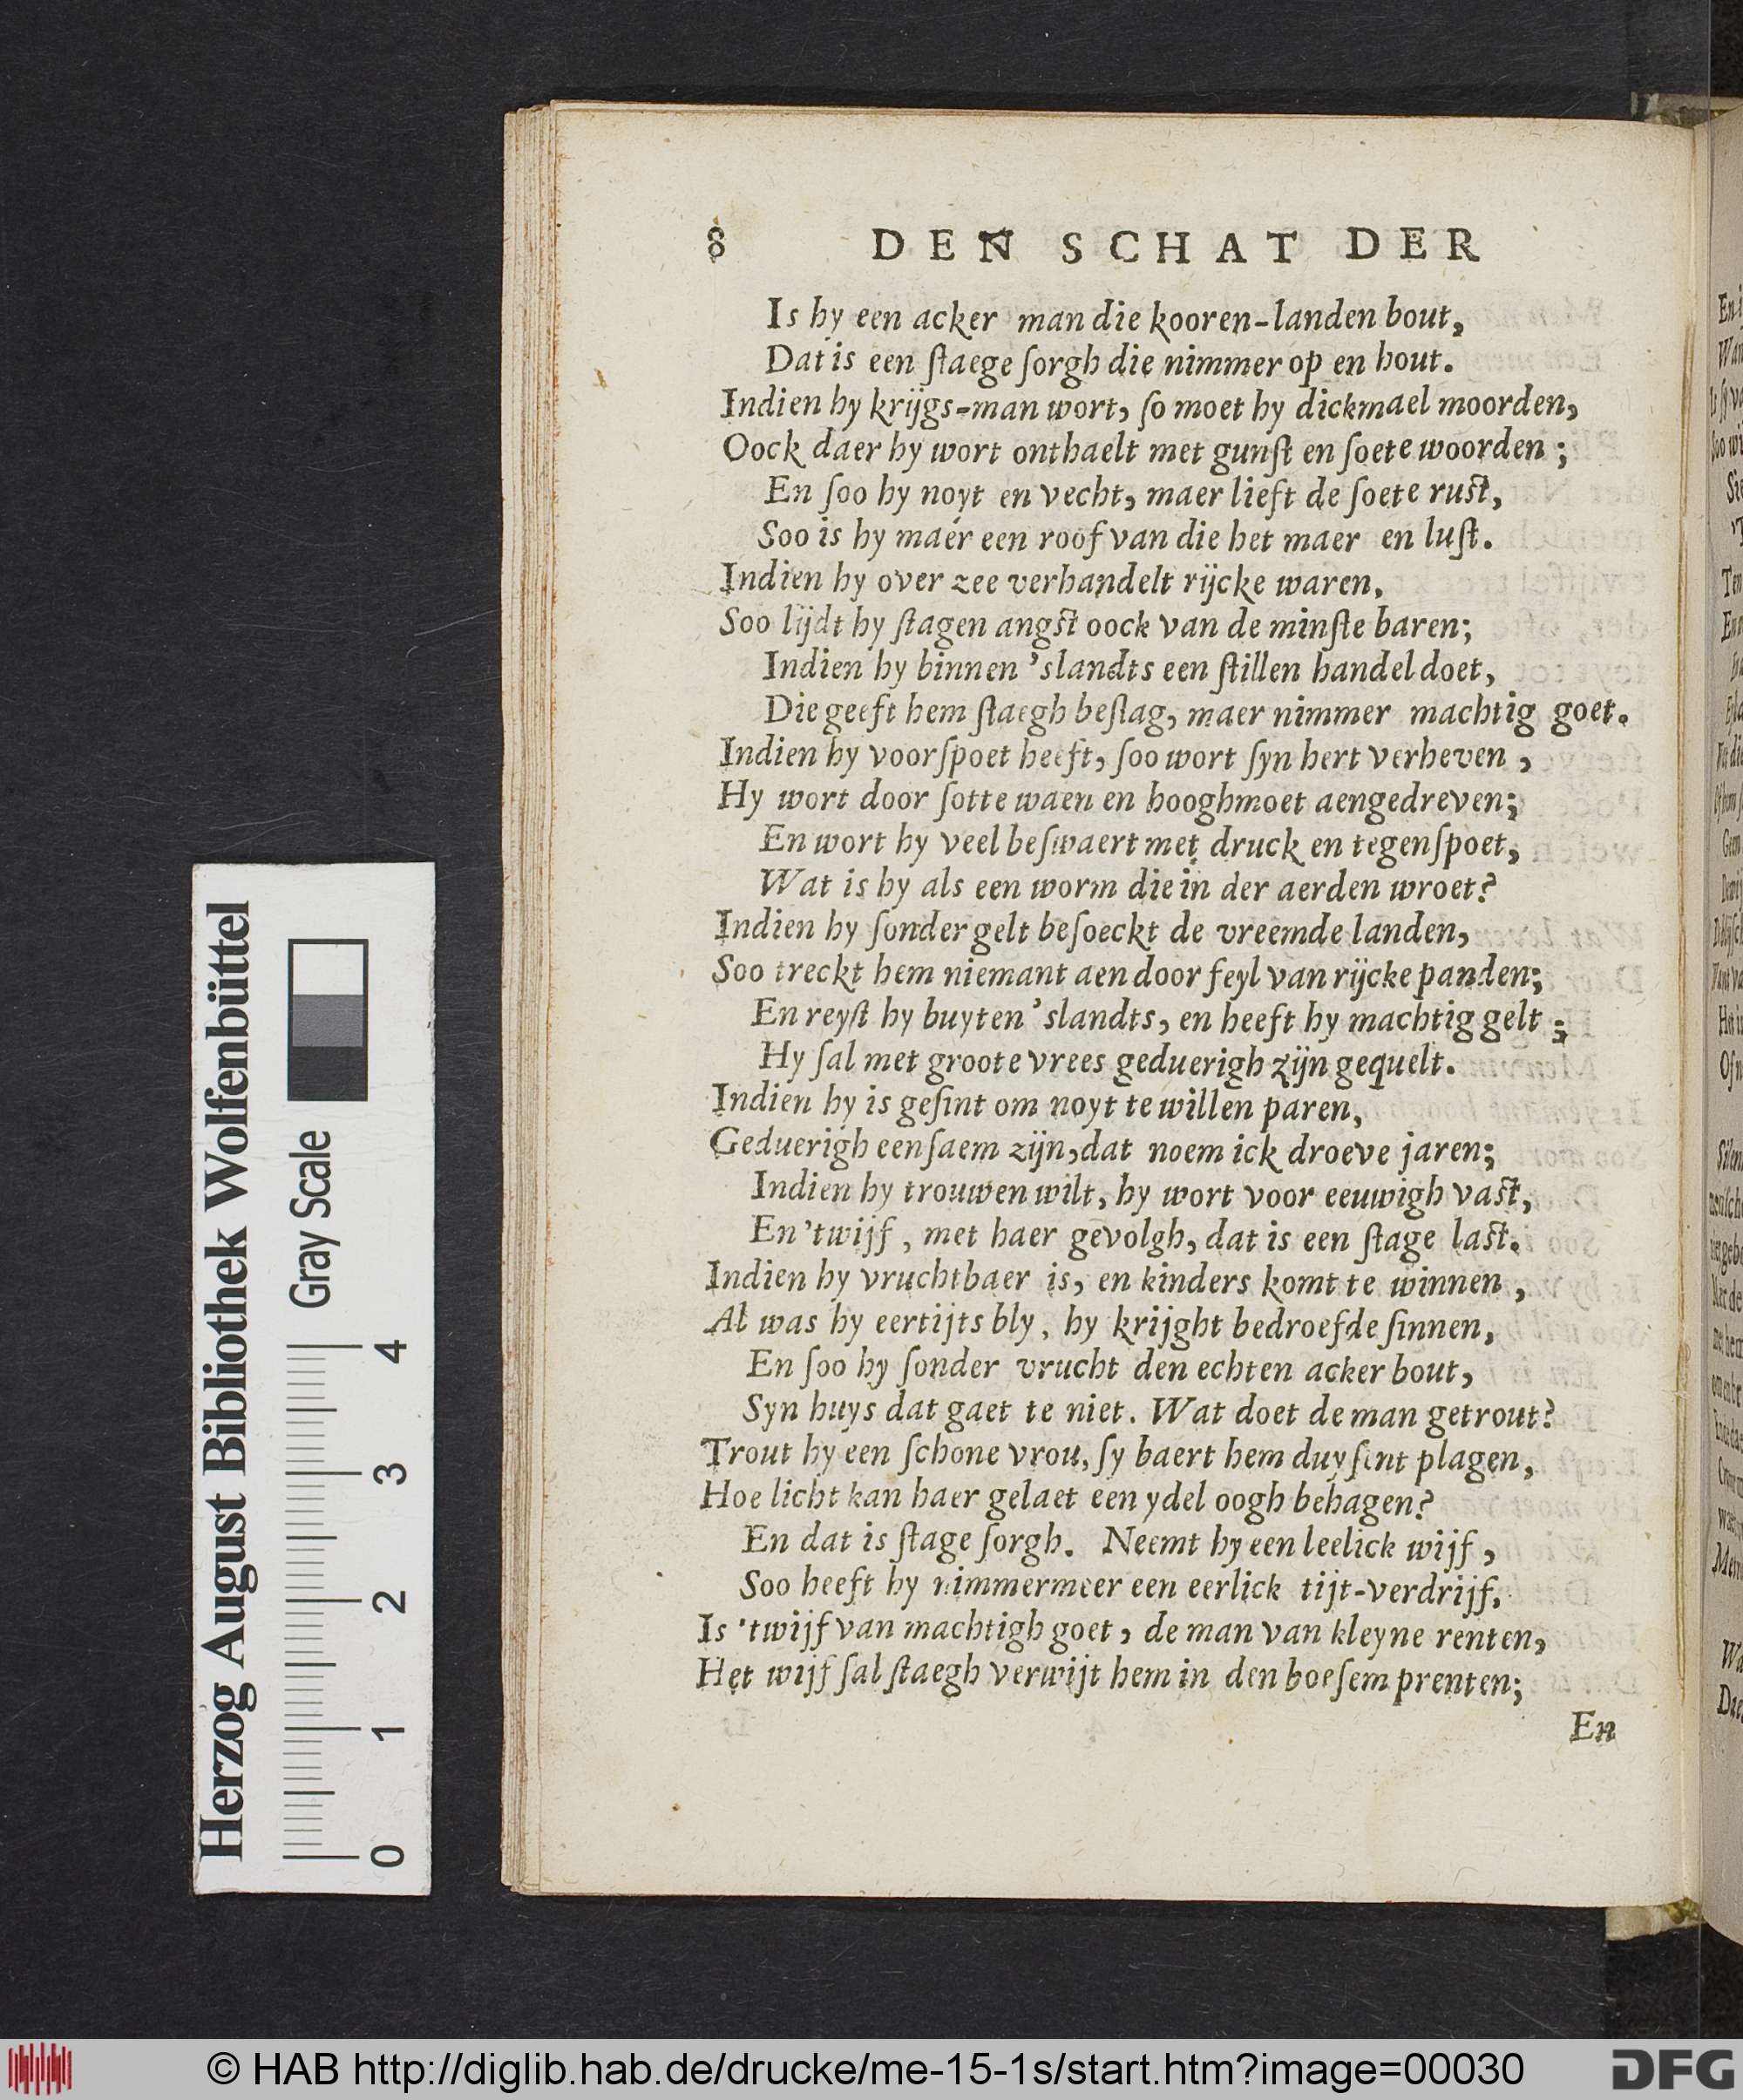 8 DEN SCHAT DER
Is hy een acker man die kooren-landen bout,
Dat is een ſtaege ſorgh die nimmer op en hout.
Indien hy krijgs-man wort, ſo moet hy dickmael moorden,
Oock daer hy wort onthaelt met gunſt en ſoete woorden;
En ſoo hy noyt en vecht, maer lieft de ſoete ruſt,
Soo is hy maer een roof van die het maer en luſt.
Indien hy over zee verhandelt rijcke waren,
Soo lijdt hy ſtagen angſt oock van de minſte baren;
Indien hy binnen 'slandts een ſtillen handel doet,
Die geeft hem ſtaegh beſlag, maer nimmer machtig goet.
Indien hy voorſpoet heeft, ſoo wort ſyn hert verheven,
Hy wort door ſotte waen en hooghmoet aengedreven;
En wort hy veel beſwaert met druck en tegenſpoet,
Wat is hy als een worm die in der aerden wroet?
Indien hy ſonder gelt beſoeckt de vreemde landen,
Soo treckt hem niemant aen door feyl van rijcke panden;
En reyſt hy buyten 'slandts, en heeft hy machtig gelt;
Hy ſal met groote vrees geduerigh zijn gequelt.
Indien hy is geſint om noyt te willen paren,
Geduerigh eenſaem zijn, dat noem ick droeve jaren;
Indien hy trouwen wilt, hy wort voor eeuwigh vaſt,
En 'twijf, met haer gevolgh, dat is een ſtage laſt.
Indien hy vruchtbaer is, en kinders komt te winnen,
Al was hy eertijts bly, hy krijght bedroefde ſinnen,
En ſoo hy ſonder vrucht den echten acker bout,
Syn huys dat gaet te niet. Wat doet de man getrout?
Trout hy een ſchone vrou, ſy baert hem duyſent plagen,
Hoe licht kan haer gelaet een ydel oogh behagen?
En dat is ſtage ſorgh. Neemt hy een leelick wijf,
Soo heeft hy nimmermeer een eerlick tijt-verdrijf,
Is 'twijf van machtigh goet, de man van kleyne renten,
Het wijf ſal ſtaegh verwijt hem in den boeſem prenten;
En
Herzog August Bibliothek Wolfenbüttel
Gray Scale
0 1 2 3 4
© HAB http://diglib.hab.de/drucke/me-15-1s/start.htm?image=00030
DFG